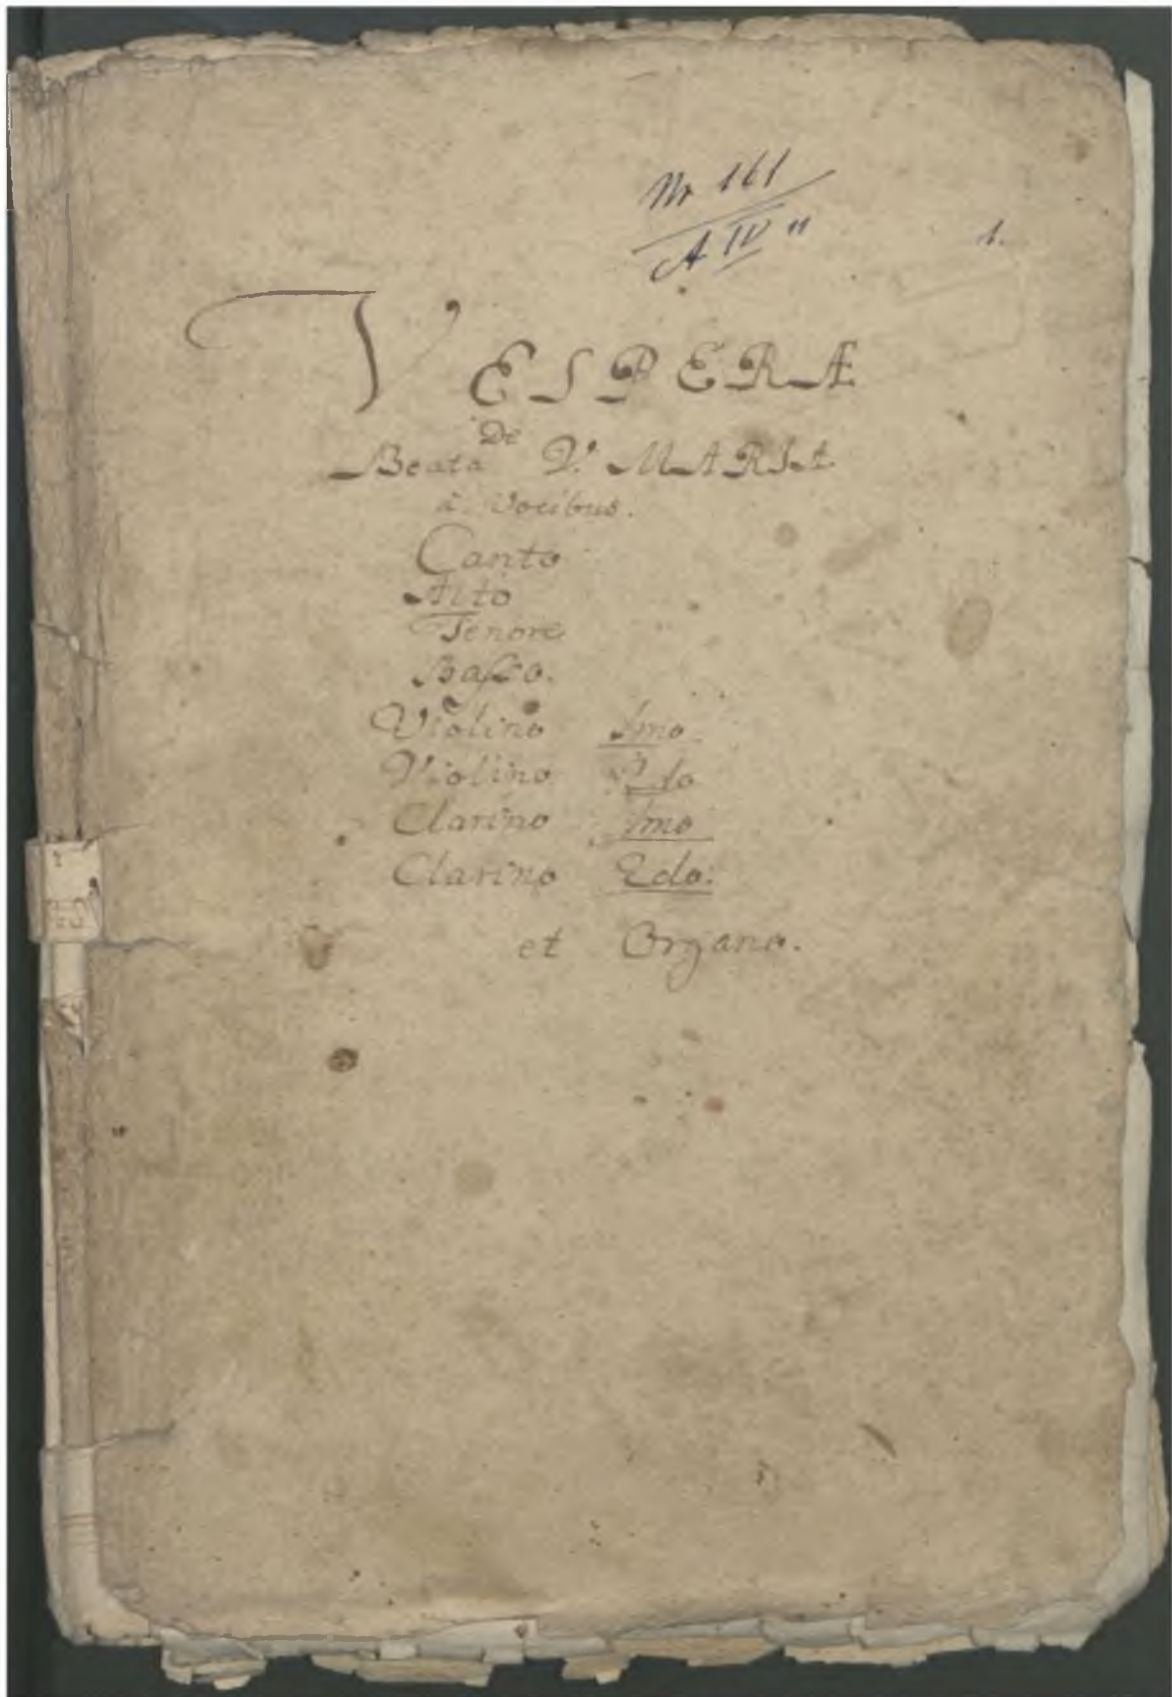 Nr 161
A IV "
1.
VESPERÆ
De
Beata V. MARIA
à Vocibus.
Canto
Alto
Tenore
Basso.
Violino Imo
Violino 2do
Clarino Imo
Clarino 2do:
et Organo.